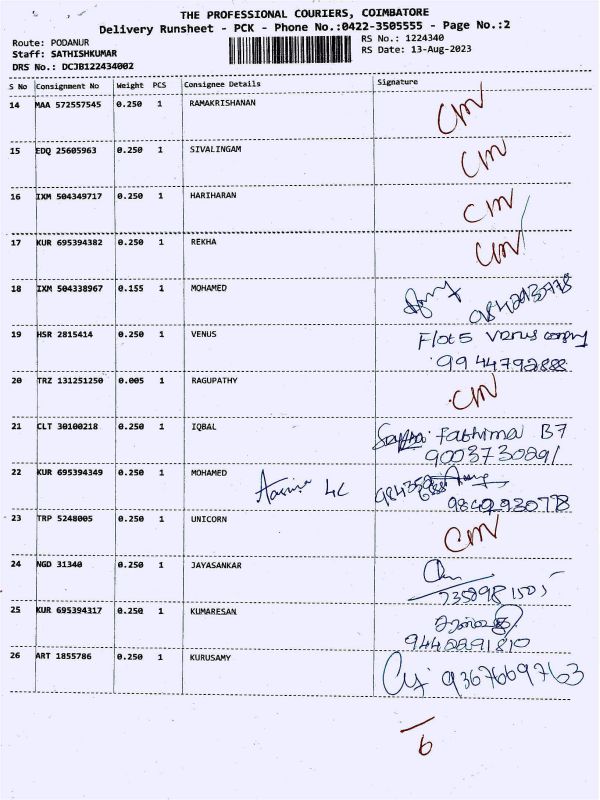 THE PROFESSIONAL COURIERS, COIMBATORE
Delivery Runsheet - PCK - Phone No.:0422-3505555 - Page No.:2
Route: PODANUR
RS No.: 1224340
Staff: SATHISHKUMAR
RS Date: 13-Aug-2023
DRS No.: DCJB122434002
S No Consignment No Weight PCS Consignee Details Signature
14 MAA 572557545 0.250 1 RAMAKRISHANAN CM
15 EDQ 25605963 0.250 1 SIVALINGAM CM
16 IXM 504349717 0.250 1 HARIHARAN CM
17 KUR 695394382 0.250 1 REKHA CM
18 IXM 504338967 0.155 1 MOHAMED
19 HSR 2815414 0.250 1 VENUS Flot 5 Venus
9944792888
20 TRZ 131251250 0.005 1 RAGUPATHY CM
21 CLT 30100218 0.250 1 IQBAL Fathima B7
9003730891
22 KUR 695394349 0.250 1 MOHAMED 4C
9842930778
23 TRP 5248005 0.250 1 UNICORN CM
24 NGD 31340 0.250 1 JAYASANKAR
25 KUR 695394317 0.250 1 KUMARESAN
9442891810
26 ART 1855786 0.250 1 KURUSAMY 9367669763
6